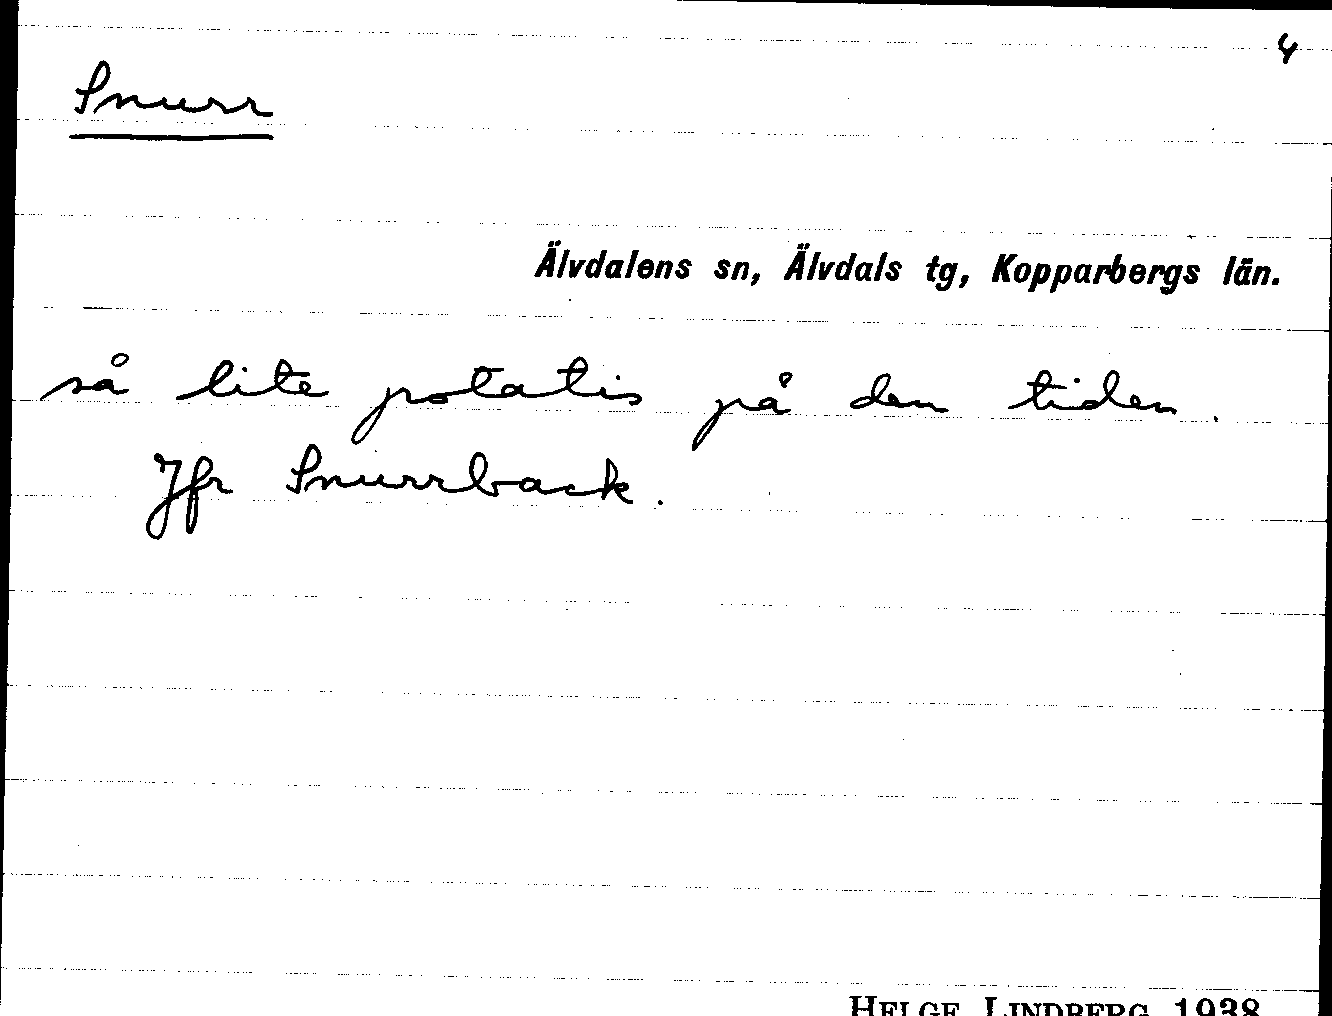 4
Snurr
Älvdalens sn, Älvdals tg, Kopparbergs län.
så lite potatis på den tiden.
Jfr Snurrback.
HELGE LINDBERG 1938